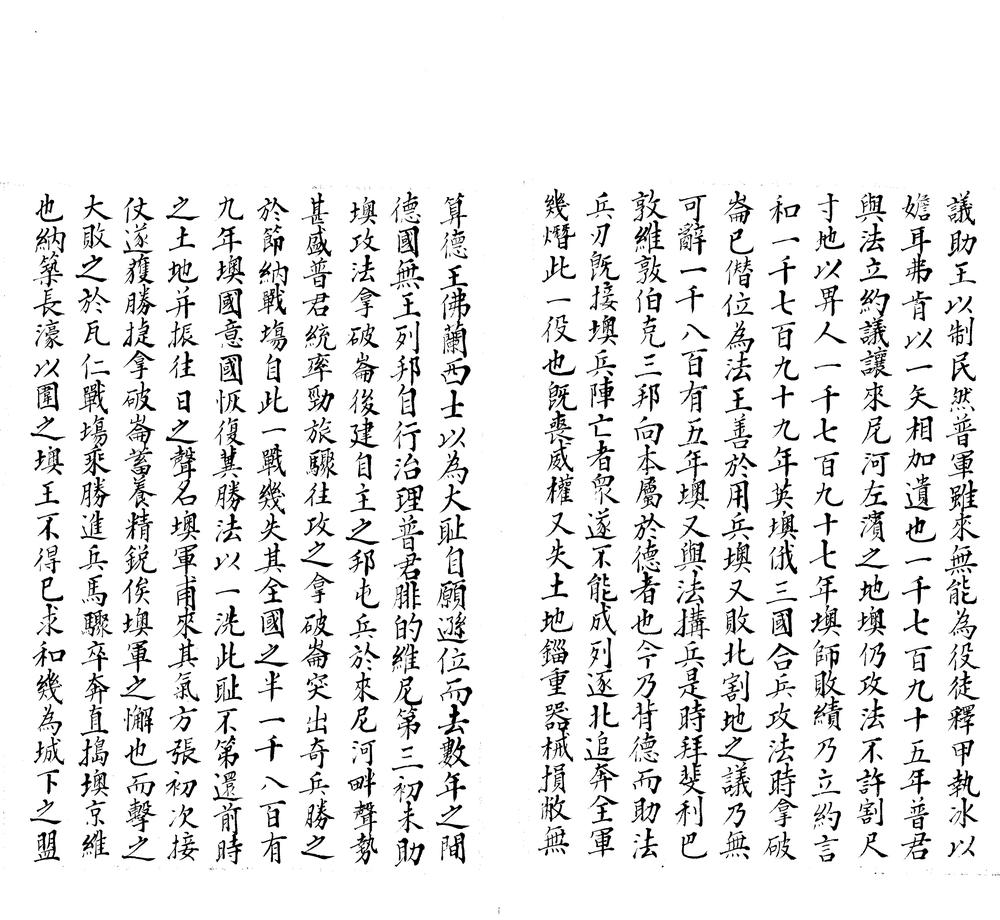 議助王以制民然普軍雖來無能為役徒釋甲執冰以
嬉耳弗肯以一矢相加遺也一千七百九十五年普君
與法立約議讓來尼河左濱之地墺仍攻法不許割尺
寸地以畀人一千七百九十七年墺師敗績乃立約言
和一千七百九十九年英墺俄三國合兵攻法時拿破
崙已僭位為法王善於用兵墺又敗北割地之議乃無
可辭一千八百有五年墺又與法搆兵是時拜斐利巴
敦維敦伯克三邦向本屬於德者也今乃背德而助法
兵刃旣接墺兵陣亡者衆遂不能成列逐北追奔全軍
幾熸此一役也旣喪威權又失土地錙重器械損敝無
算德王佛蘭西士以為大耻自願遜位而去數年之間
德國無王列邦自行治理普君腓的維尼第三初未助
墺攻法拿破崙後建自主之邦屯兵於來尼河畔聲勢
甚盛普君統率勁旅驟往攻之拿破崙突出奇兵勝之
於節納戰塲自此一戰幾失其全國之半一千八百有
九年墺國意國恢復其勝法以一洗此耻不第還前時
之土地并振往日之聲名墺軍甫來其氣方張初次接
仗遂獲勝捷拿破崙蓄養精銳俟墺軍之懈也而擊之
大敗之於瓦仁戰塲乘勝進兵馬驟卒奔直搗墺京維
也納築長濠以圍之墺王不得已求和幾為城下之盟